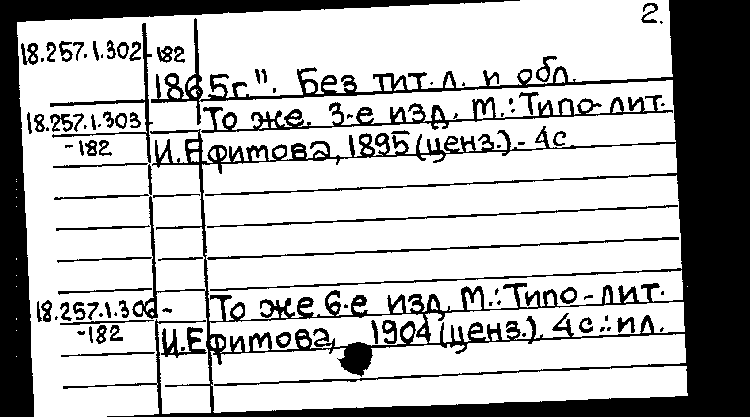 2.
18.257.1.302-182
1865г.". Без тит. л. и обл.
18.257.1.303- То же. 3-е изд. М.: Типо-лит.
-182 И. Ефитова, 1895 (ценз.). - 4 с.
18.257.1.306- То же 6-е изд. М.: Типо-лит.
-182 И. Ефитова, 1904 (ценз.). 4 с.: ил.